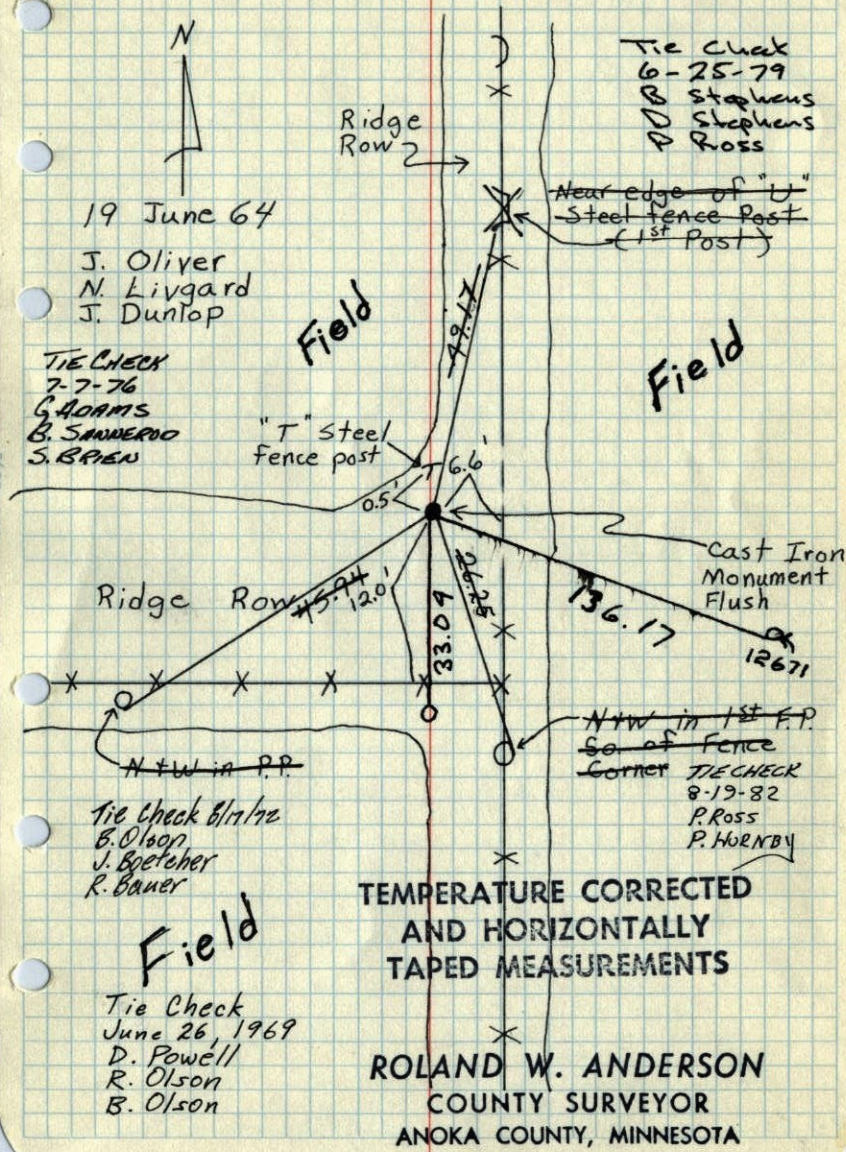 N
19 June 64
J. Oliver
N. Livgard
J. Dunlop
TIE CHECK
7-7-76
G ADAMS
B. SANNEROD
S. BRIEN
Ridge
Row
Tie Check
6-25-79
B Stephens
D Stephens
P Ross
Near edge of "U"
Steel fence Post
(1st Post)
Field
49.17
Field
"T" Steel
fence post
T
6.6'
0.5'
Cast Iron
Monument
Flush
Ridge Row
45.94
12.0'
33.09
26.25
136.17
12671
N+W in P.P.
N+W in 1st F.P.
So. of Fence
Corner
TIE CHECK
8-19-82
P. ROSS
P. HORNBY
Tie Check 8/17/72
B. Olson
J. Boetcher
R. Bauer
Field
Tie Check
June 26, 1969
D. Powell
R. Olson
B. Olson
TEMPERATURE CORRECTED
AND HORIZONTALLY
TAPED MEASUREMENTS
ROLAND W. ANDERSON
COUNTY SURVEYOR
ANOKA COUNTY, MINNESOTA